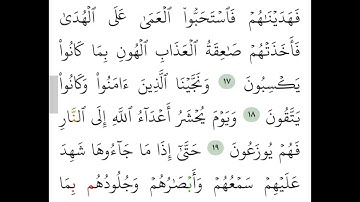 فَهَدَيْنَٰهُمْ فَٱسْتَحَبُّوا۟ ٱلْعَمَىٰ عَلَى ٱلْهُدَىٰ
فَأَخَذَتْهُمْ صَٰعِقَةُ ٱلْعَذَابِ ٱلْهُونِ بِمَا كَانُوا۟
يَكْسِبُونَ ١٧ وَنَجَّيْنَا ٱلَّذِينَ ءَامَنُوا۟ وَكَانُوا۟
يَتَّقُونَ ١٨ وَيَوْمَ يُحْشَرُ أَعْدَآءُ ٱللَّهِ إِلَى ٱلنَّارِ
فَهُمْ يُوزَعُونَ ١٩ حَتَّىٰٓ إِذَا مَا جَآءُوهَا شَهِدَ
عَلَيْهِمْ سَمْعُهُمْ وَأَبْصَٰرُهُمْ وَجُلُودُهُم بِمَا